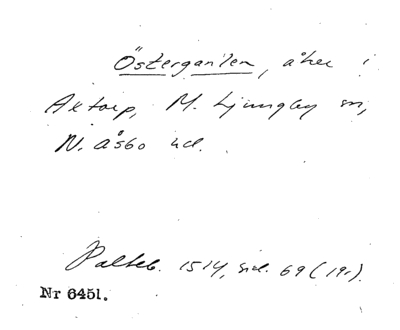 Österganiten, åker i
Axtorp, M. Ljungby sn,
N. Åsbo hd.
Palteb. 1514, sid. 69 (19r).
Nr 6451.